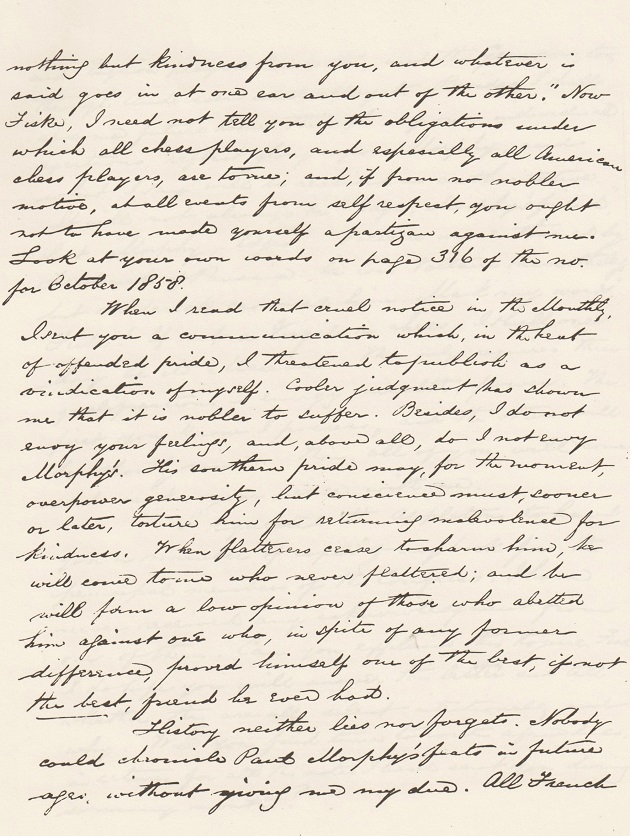 nothing but kindness from you, and whatever is
said goes in at one ear and out of the other." Now
Fiske, I need not tell you of the obligations under
which all chess players, and especially all American
chess players, are to me; and, if from no nobler
motive, at all events from self respect, you ought
not to have made yourself a partizan against me.
Look at your own words on page 316 of the no.
for October 1858.
When I read that cruel notice in the Monthly,
I sent you a communication which, in the heat
of offended pride, I threatened to publish as a
vindication of myself. Cooler judgment has shown
me that it is nobler to suffer. Besides, I do not
envy your feelings, and, above all, do I not envy
Morphy's. His southern pride may, for the moment,
overpower generosity, but conscience must, sooner
or later, torture him for returning malevolence for
kindness. When flatterers cease to charm him, he
will come to me who never flattered; and he
will form a low opinion of those who abetted
him against one who, in spite of any former
difference, proved himself one of the best, if not
the best, friend he ever had.
History neither lies nor forgets. Nobody
could chronicle Paul Morphy's feats in future
ages, without giving me my due. All French